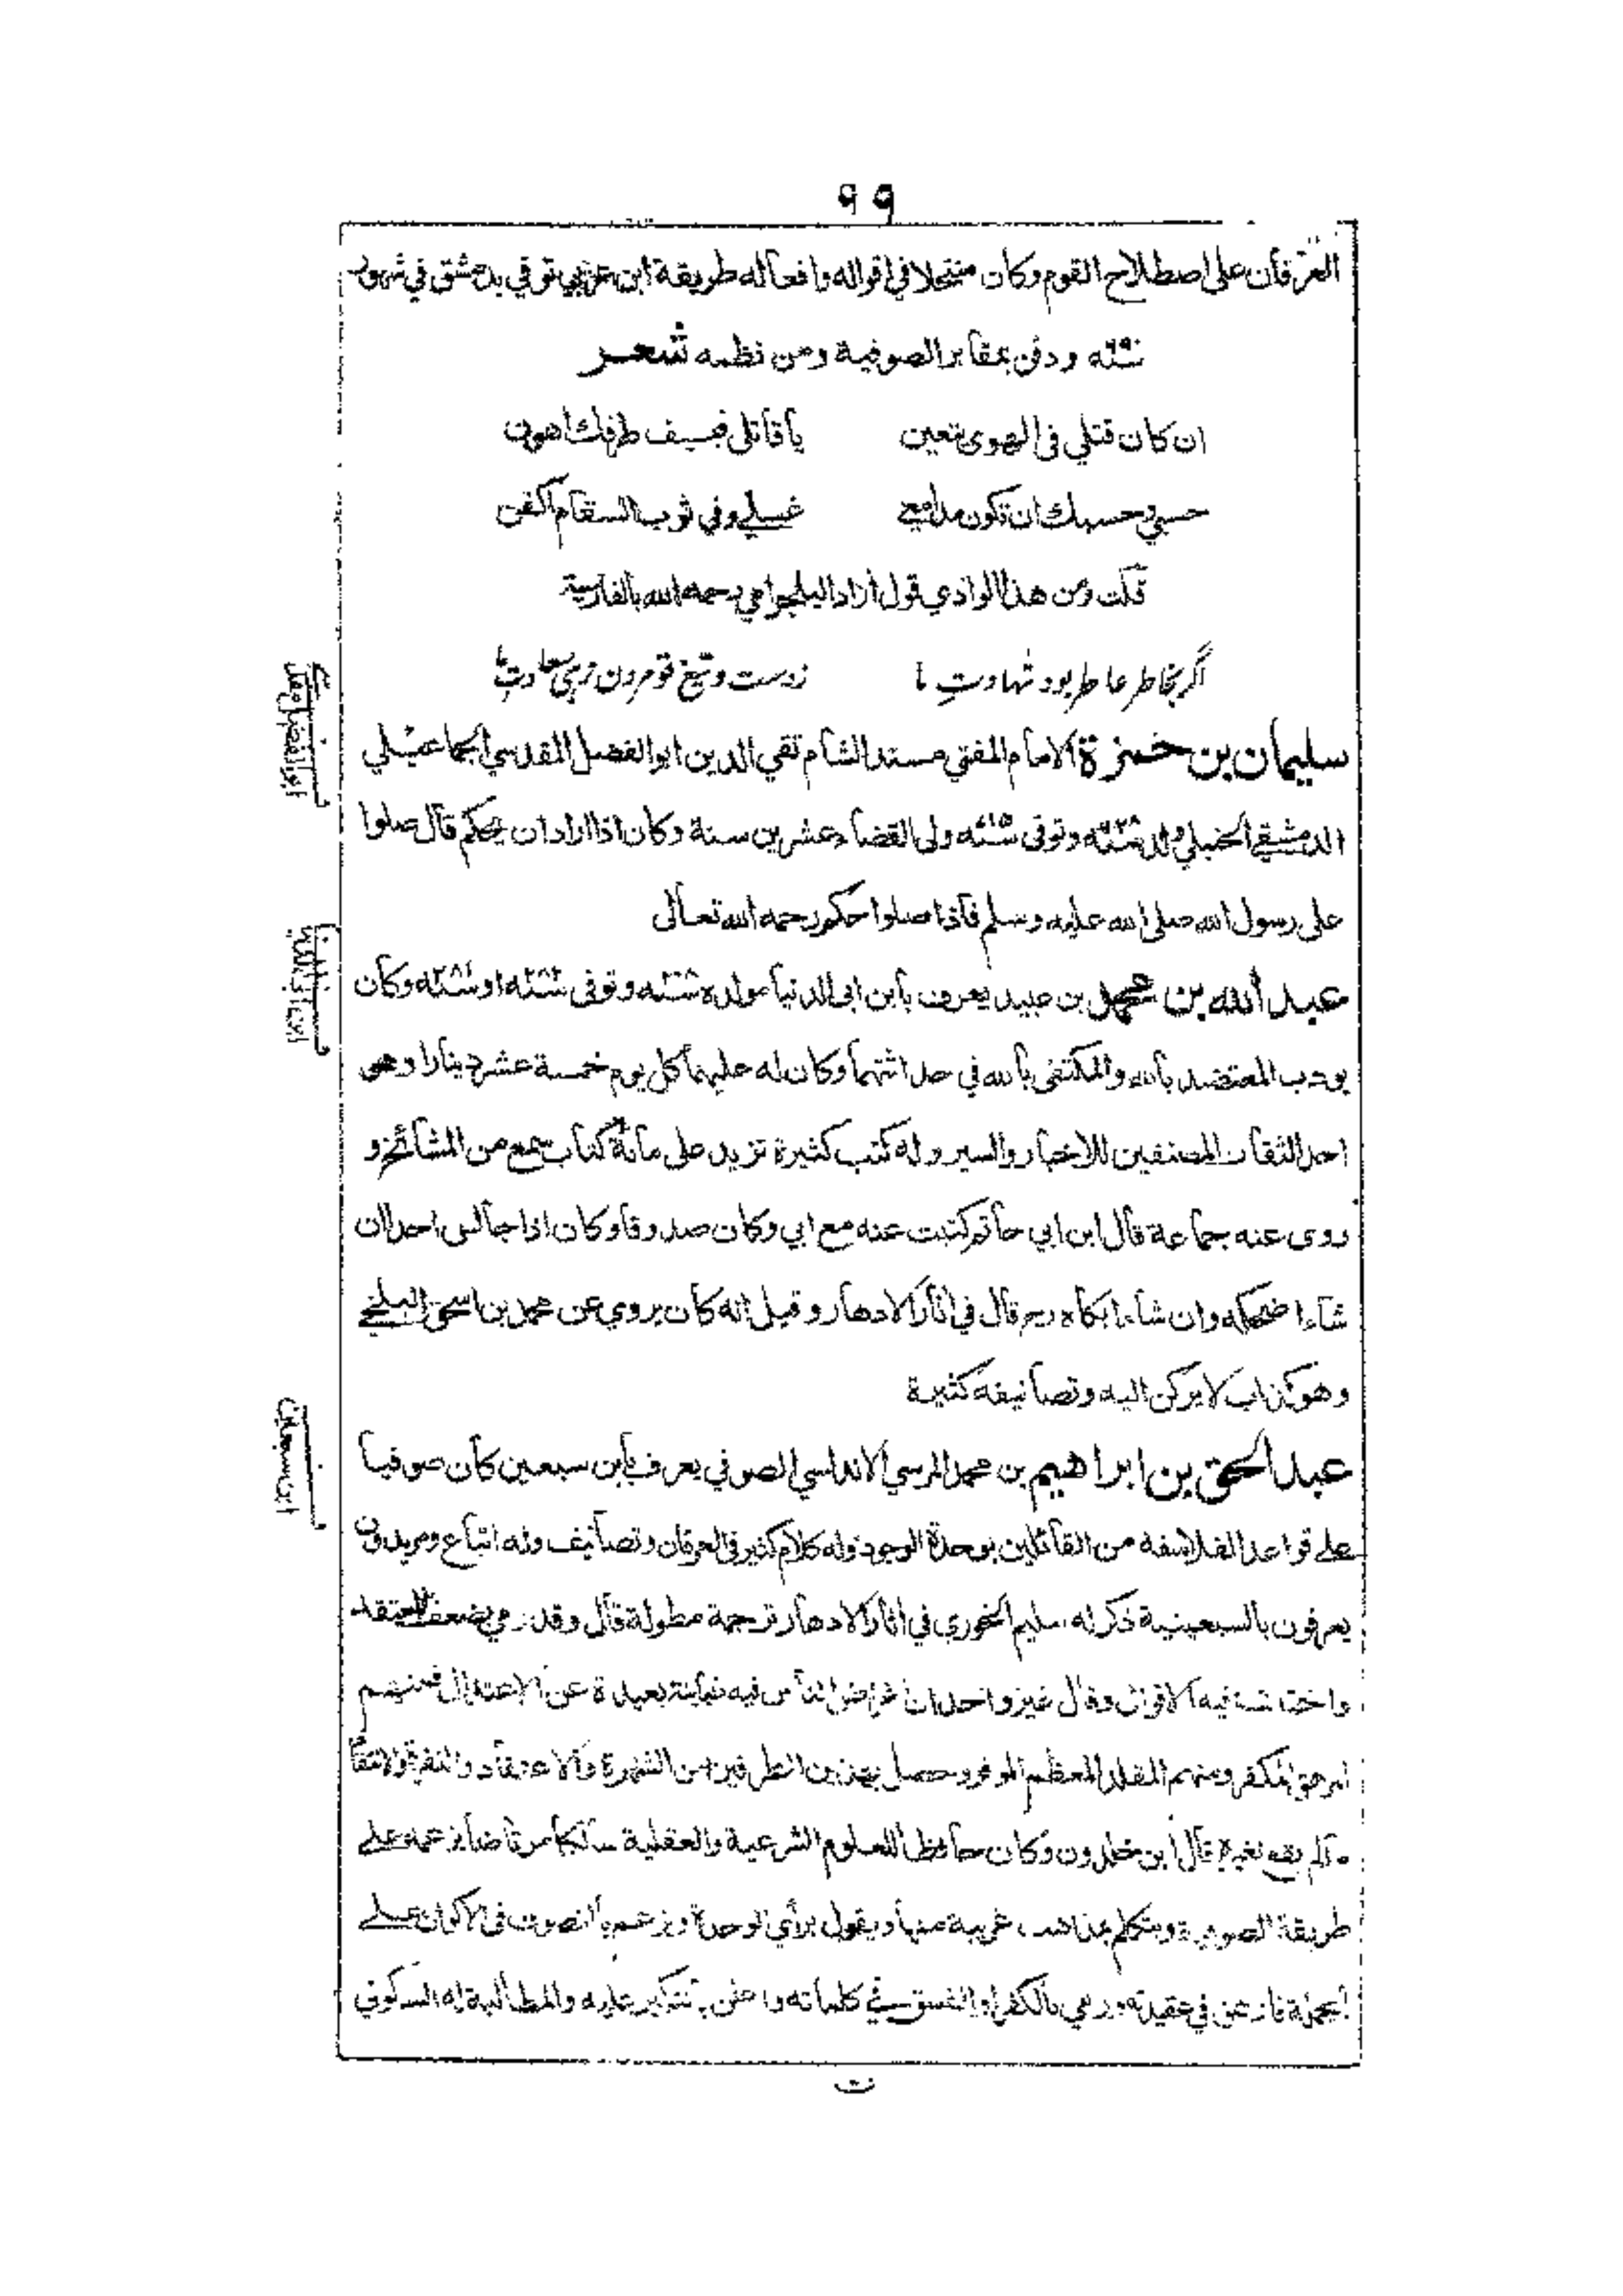 ٩٩
العرفان على اصطلاح القوم وكان منتحلا في اقواله وافعاله طريقة ابن عربي توفي بدمشق في شهور
سنة ودفن بمقابر الصوفية ومن نظمه شعر
ان كان قتلي في الهوى يتعين يا قاتلي فبسيف طرفك اهون
حسبي وحسبك ان تكون مدامعي غسلي وفي ثوب السقام اكفن
قلت ومن هذا الوادي قول ازاد البلجرامي رحمه الله بالفارسية
اگر بخاطر عاطر بود شهادتِ ما زدست و تیغ تو مردن زهی سعادتِ ما
سليمان بن حمزة الامام المفتي مسند الشام تقي الدين ابو الفضل المقدسي الجماعيلي
الدمشقي الحنبلي ولد وتوفى ولى القضاء عشرين سنة وكان اذا اراد ان يحكم قال صلوا
على رسول الله صلى الله عليه وسلم فاذا صلوا حكم رحمه الله تعالى
عبد الله بن محمد بن عبيد يعرف بابن ابي الدنيا مولده وتوفى او وكان
يودب المعتضد بالله والمكتفى بالله في حداثتهما وكان له عليهما كل يوم خمسة عشر دينارا وهو
احد الثقات المصنفين للاخبار والسير وله كتب كثيرة تزيد على مائة كتاب سمع من المشائخ و
روى عنه جماعة قال ابن ابي حاتم كتبت عنه مع ابي وكان صدوقا وكان اذا جالس احدا ان
شاء اضحكه وان شاء ابكاه قال في اثار الادهار وقيل انه كان يروي عن محمد بن اسحق البلخي
وهو كذاب لا يركن اليه وتصانيفه كثيرة
عبد الحق بن ابراهيم بن محمد المرسي الاندلسي الصوفي يعرف بابن سبعين كان صوفيا
على قواعد الفلاسفة من القائلين بوحدة الوجود وله كلام كثير في العرفان وتصانيف وله اتباع ومريدون
يعرفون بالسبعينية ذكر له سليم الخوري في اثار الادهار ترجمة مطولة قال وقد رمي بضعف المعتقد
واختلفت فيه الاقوال وقال غير واحد ان اغراض الناس فيه متباينة بعيدة عن الاعتدال فمنهم
المرهق المكفر ومنهم المقلد المعظم الموقر وحصل بهذين الطرفين من الشهرة والاعتقاد والنفرة والانتقاد
ما لم يقع لغيره قال ابن خلدون وكان حافظا للعلوم الشرعية والعقلية سالكا مرتاضا بزعمه على
طريقة الصوفية ويتكلم بمذاهب غريبة منها ويقول براي الوحدة ويزعم بالتصرف في الاكوان على
الجملة فارهق في عقيدته ورمي بالكفر او الفسق في كلماته واعلن بتنكير عليه والمطالبة له السكوني
ابو الفضل
ابن ابي الدنيا
ابن سبعين